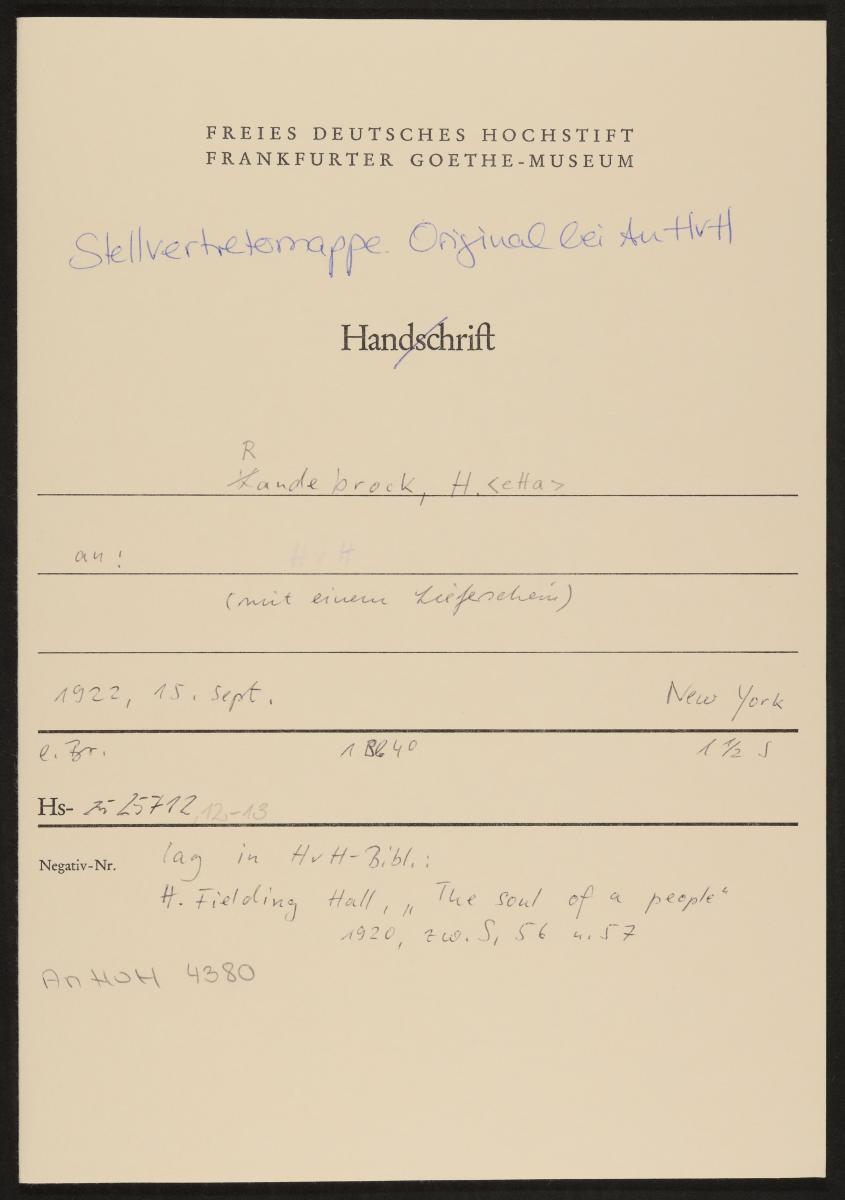 FREIES DEUTSCHES HOCHSTIFT
FRANKFURTER GOETHE-MUSEUM
Stellvertretermappe. Original bei AnHvH
Handschrift
R
andebrock, H.<etta>
an: HvH
(mit einem Lieferschein)
1922, 15. Sept. New York
e. Br. 1 Bl 4° 1 1/2 S
Hs- 25712,12-13
Negativ-Nr. lag in HvH-Bibl.:
H. Fielding Hall, „The soul of a people“
1920, zw. S. 56 u. 57
AnHvH 4380